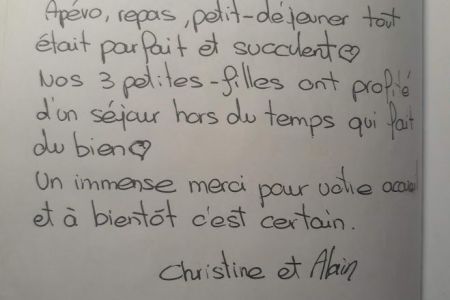 Apéro, repas, petit-déjeuner tout
était parfait et succulent♡
Nos 3 petites-filles ont profité
d'un séjour hors du temps qui fait
du bien♡
Un immense merci pour votre accueil
et à bientôt c'est certain.
Christine et Alain